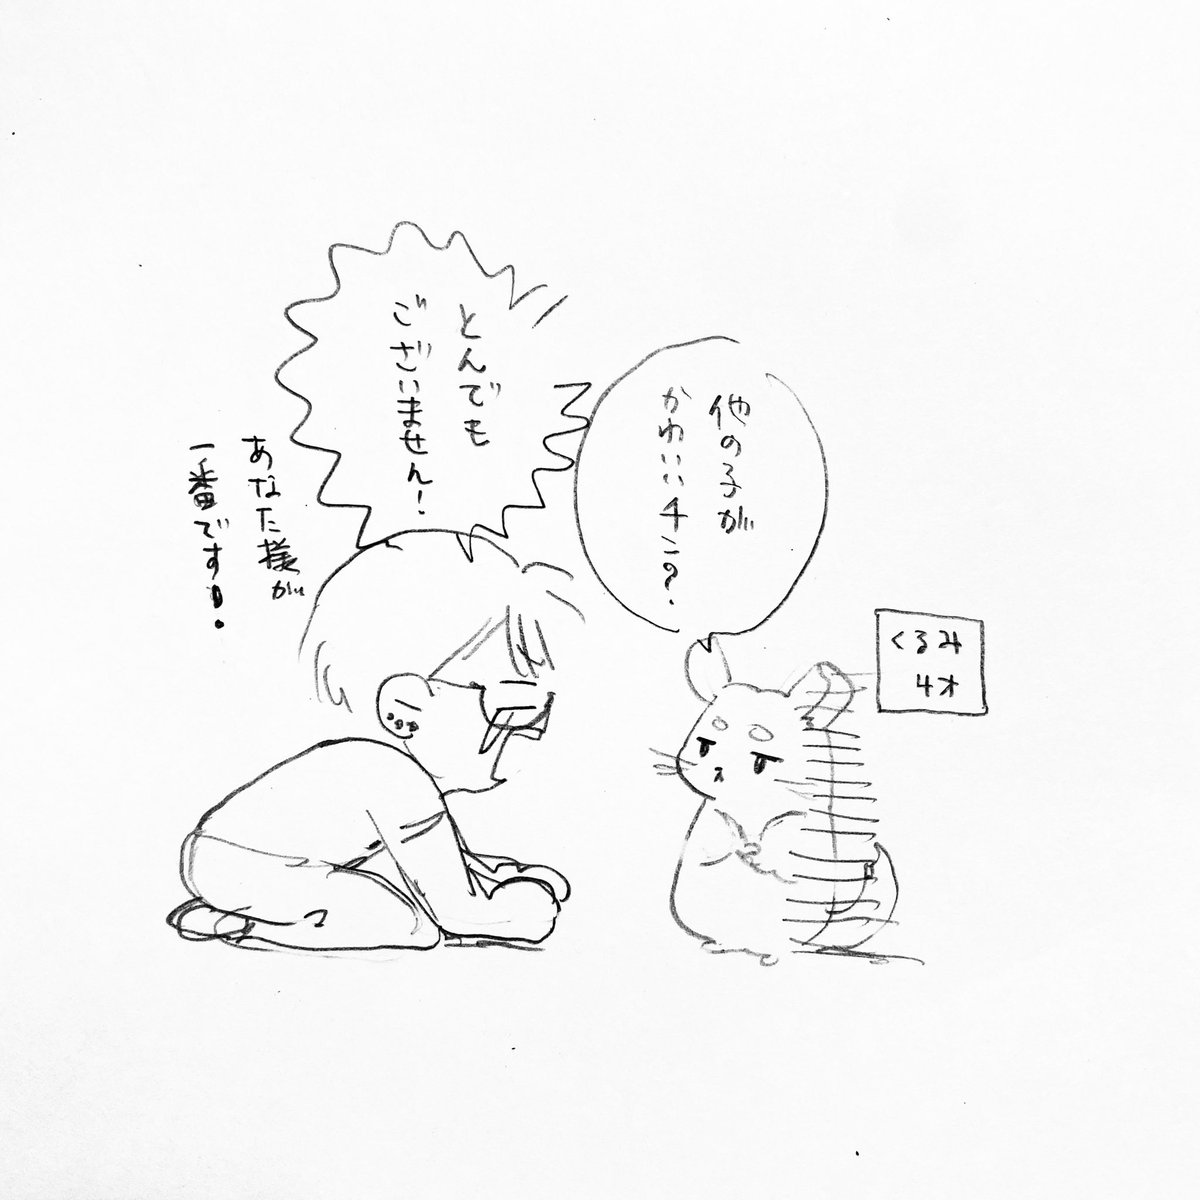 他の子が
かわいいチン？
とんでも
ございません！
あなた様が
一番です！
くるみ
4才